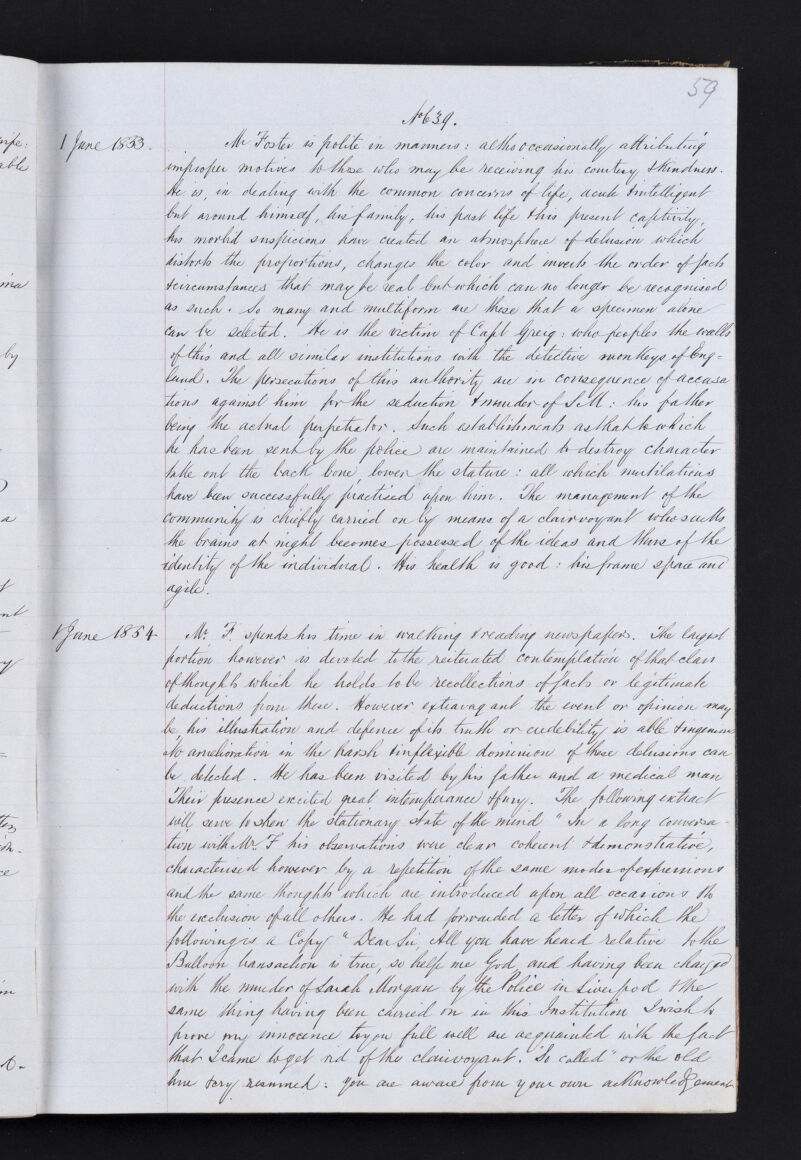 59
No 639.
1 June 1853. Mr Foster is polite in manners: altho occasionally attributing
improper motives to those who may be receiving his courtesy & kindness.
He is, in dealing with the common concerns of life, acute & intelligent
but around himself, his family, his past life & his present captivity,
his morbid suspicions have created an atmosphere of delusion which
distorts the proportions, changes the color and inverts the order of facts
& circumstances that may be real but which can no longer be recognised
as such. So many and multiform are these that a specimen alone
can be selected. He is the victim of Capt Greig: who peoples the walls
of this and all similar institutions with the detective monkeys of Eng=
land. The persecutions of this authority are in consequence of accusa
tions against him for the seduction & murder of S.M: his father
being the actual perpetrator. Such establishments as that to which
he has been sent by the police are maintained to destroy character
take out the back bone, lower the stature: all which mutilations
have been successfully practised upon him. The management of the
community is chiefly carried on by means of a clairvoyant who sucks
the brains at night becomes possessed of the ideas and thus of the
identity of the individual. His health is good: his frame spare and
agile.
1 June 1854 Mr. F. spends his time in walking & reading newspapers. The largest
portion however is devoted to the reiterated contemplation of that class
of thoughts which he holds to be recollections of facts or legitimate
deductions from these. However extravagant the event or opinion may
be, his illustration and defence of its truth or credebility is able & ingenious
No amelioration in the harsh & inflexible dominion of these delusions can
be detected. He has been visited by his father and a medical man
Their presence excited great intemperance & fury. The following extract
will serve to shew the stationary state of the mind "In a long conversa-
tion with Mr. F his observations were clear coherent & demonstrative,
characterised however by a repetition of the same modes of expressions
and the same thoughts which are introduced upon all occasions to
the exclusion of all others. He had forwarded a letter of which the
following is a Copy "Dear Sir, All you have heard relative to the
Balloon transaction is true, so help me God, and having been charged
with the murder of Sarah Morgan by the Police in Liverpool & the
same thing having been carried on in this Institution I wish to
prove my innocence & you full well are acquainted with the fact
that I came to get rid of the clairvoyant. "So called" or the old
hue & cry resumed: you are aware from your own acknowledgement